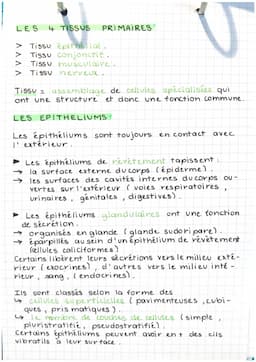 LES 4 TISSUS PRIMAIRES
> Tissu épithélial.
> Tissu conjonctif.
> Tissu musculaire.
> Tissu nerveux.
Tissu = assemblage de cellules spécialisées qui
ont une structure et donc une fonction commune.
LES EPITHELIUMS
Les épithéliums sont toujours en contact avec
l'extérieur.
► Les épithéliums de revêtement tapissent :
↳ la surface externe du corps (épiderme).
↳ les surfaces des cavités internes du corps ou-
vertes sur l'extérieur (voies respiratoires,
urinaires, génitales, digestives).
► Les épithéliums glandulaires ont une fonction
de sécrétion.
→ organisés en glande (glande sudoripare).
→ éparpillés au sein d'un épithélium de revêtement
(cellules caliciformes)
Certains libèrent leurs sécrétions vers le milieu exté-
rieur (exocrines), d'autres vers le milieu inté-
rieur, sang, (endocrines).
Ils sont classés selon la forme des
↳ cellules superficielles (pavimenteuses, cubi-
ques, prismatiques).
↳ le nombre de couches de cellules (simple,
pluristratifié, pseudostratifié).
Certains épithéliums peuvent avoir en + des cils
vibratils à leur surface.